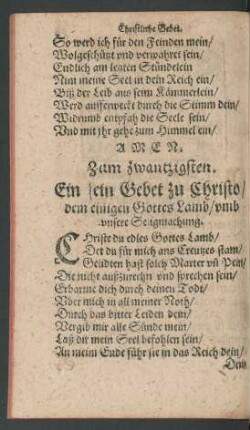 Christliche Gebet.
So werd ich für den Feinden mein/
Wolgeschützt vnd verwahret sein/
Endlich am letzten Stündelein
Nim meine Seel in dein Reich ein/
Biß der Leib aus seim Kämmerlein/
Werd aufferweckt durch die Stimm dein/
Widrumb entpfah die Seele sein/
Vnd mit jhr gehe zum Himmel ein/
A M E N.
Zum zwantzigsten.
Ein fein Gebet zu Christo/
dem einigen Gottes Lamb/ vmb
vnsere Seligmachung.
CHriste du edles Gottes Lamb/
Der du für mich ans Creutzes stam/
Gelidten hast solch Marter vñ Pein/
Die nicht außzureden vnd sprechen sein/
Erbarme dich durch deinen Todt/
Vber mich in all meiner Noth/
Durch das bitter Leiden dein/
Vergib mir alle Sünde mein/
Laß dir mein Seel befohlen sein/
An meim Ende führ sie in das Reich dein/
Dem